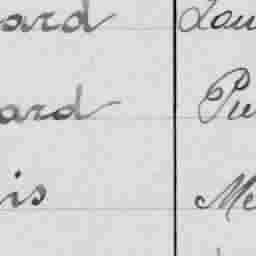 ard Lou
ard Pie
is Me